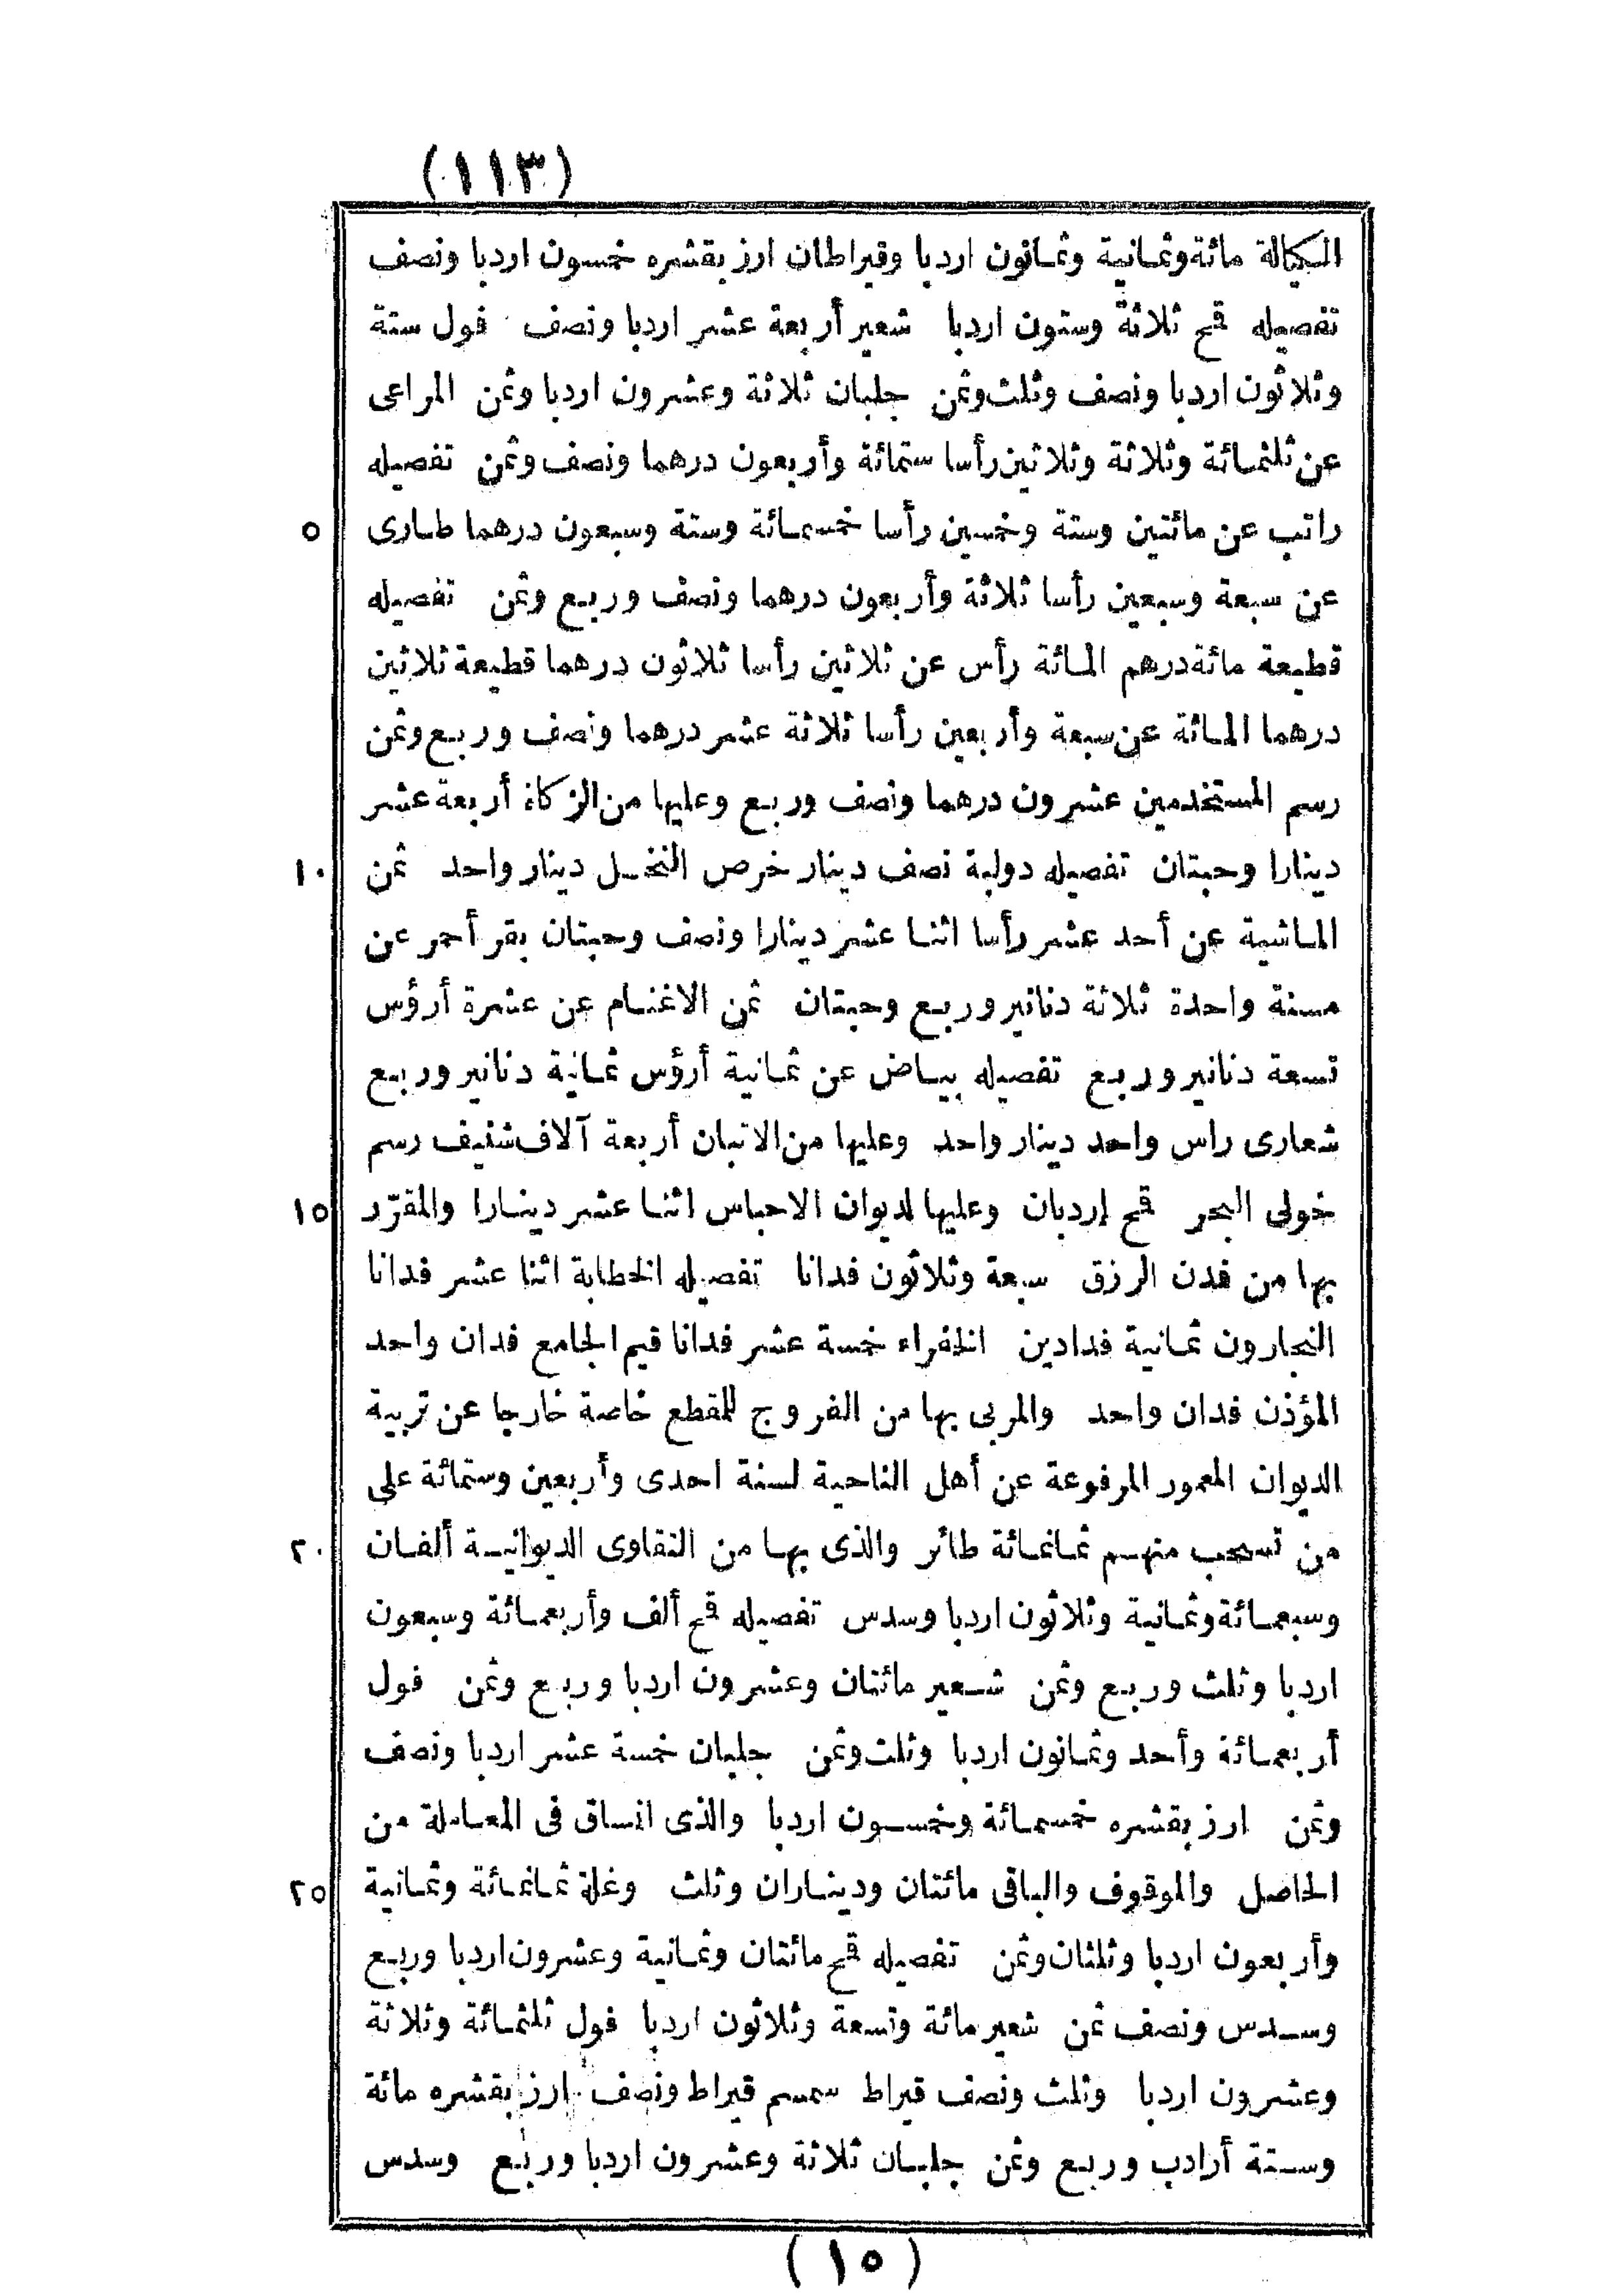 (١١٣)
الكيالة مائة وثمانية وثمانون اردبا وقيراطان ارز بقشره خمسون اردبا ونصف
تفصيله قمح ثلاثة وستون اردبا شعير أربعة عشر اردبا ونصف فول ستة
وثلاثون اردبا ونصف وثلث وثمن جلبان ثلاثة وعشرون اردبا وثمن المراعى
عن ثلثمائة وثلاثة وثلاثين رأسا ستمائة وأربعون درهما ونصف وثمن تفصيله
٥ راتب عن مائتين وستة وخمسين رأسا خمسمائة وستة وسبعون درهما طارى
عن سبعة وسبعين رأسا ثلاثة وأربعون درهما ونصف وربع وثمن تفصيله
قطيعة مائة درهم المائة رأس عن ثلاثين رأسا ثلاثون درهما قطيعة ثلاثين
درهما المائة عن سبعة وأربعين رأسا ثلاثة عشر درهما ونصف وربع وثمن
رسم المستخدمين عشرون درهما ونصف وربع وعليها من الزكاة أربعة عشر
١٠ دينارا وحبتان تفصيله دولبة نصف دينار خرص النخل دينار واحد ثمن
الماشية عن أحد عشر رأسا اثنا عشر دينارا ونصف وحبتان بقر أحمر عن
مسنة واحدة ثلاثة دنانير وربع وحبتان ثمن الاغنام عن عشرة أرؤس
تسعة دنانير وربع تفصيله بياض عن ثمانية أرؤس ثمانية دنانير وربع
شعارى راس واحد دينار واحد وعليها من الاتبان أربعة آلاف شنيف رسم
١٥ خولى البحر قمح إردبان وعليها لديوان الاحباس اثنا عشر دينارا والمقرّر
بها من فدن الرزق سبعة وثلاثون فدانا تفصيله الخطابة اثنا عشر فدانا
النجارون ثمانية فدادين الخفراء خمسة عشر فدانا قيم الجامع فدان واحد
المؤذن فدان واحد والمربى بها من الفروج للمقطع خاصة خارجا عن تربية
الديوان المعمور المرفوعة عن أهل الناحية لسنة احدى وأربعين وستمائة على
٢٠ من تسحب منهم ثمانمائة طائر والذى بها من التقاوى الديوانية ألفان
وسبعمائة وثمانية وثلاثون اردبا وسدس تفصيله قمح ألف وأربعمائة وسبعون
اردبا وثلث وربع وثمن شعير مائتان وعشرون اردبا وربع وثمن فول
أربعمائة وأحد وثمانون اردبا وثلث وثمن جلبان خمسة عشر اردبا ونصف
وثمن ارز بقشره خمسمائة وخمسون اردبا والذى انساق فى المعاملة من
٢٥ الحاصل والموقوف والباقى مائتان وديناران وثلث وغلة ثمانمائة وثمانية
وأربعون اردبا وثلثان وثمن تفصيله قمح مائتان وثمانية وعشرون اردبا وربع
وسدس ونصف ثمن شعير مائة وتسعة وثلاثون اردبا فول ثلثمائة وثلاثة
وعشرون اردبا وثلث ونصف قيراط سمسم قيراط ونصف ارز بقشره مائة
وستة أرادب وربع وثمن جلبان ثلاثة وعشرون اردبا وربع وسدس
(١٥)